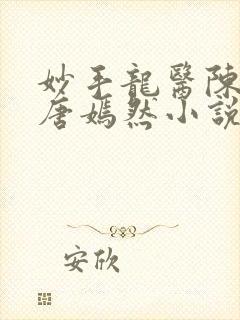 妙手龍醫陳
唐嫣然小説
安欣